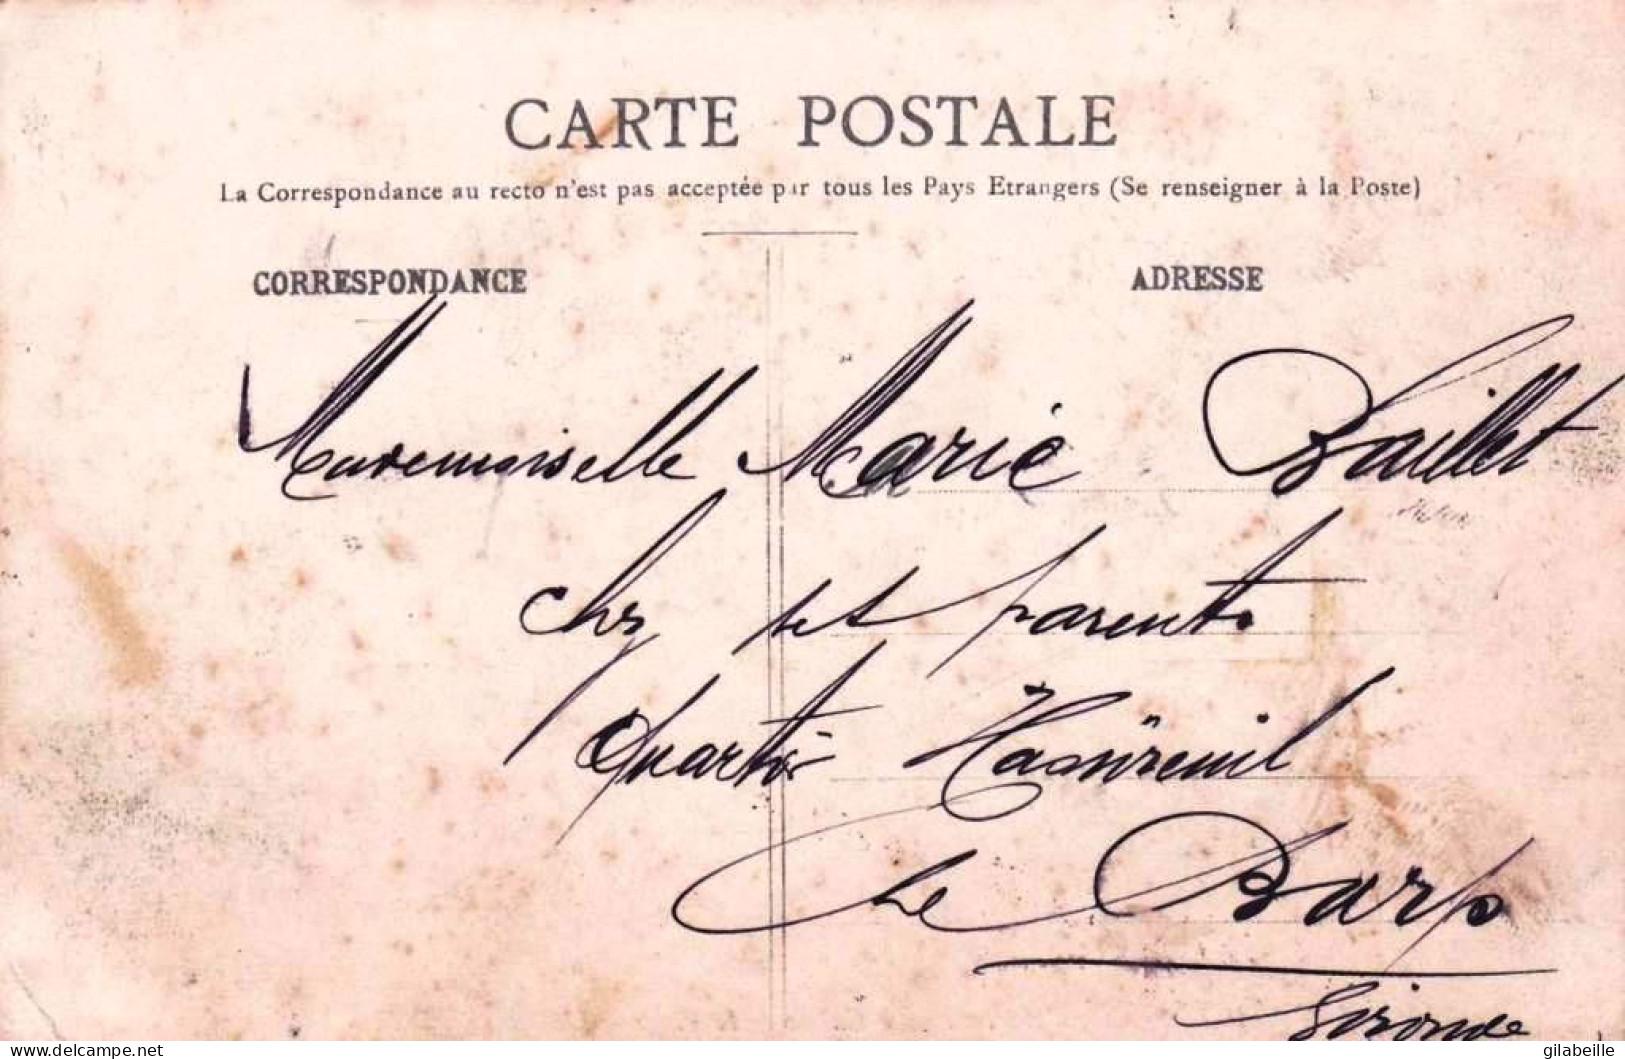 CARTE POSTALE
La Correspondance au recto n'est pas acceptée par tous les Pays Etrangers (Se renseigner à la Poste)
CORRESPONDANCE
ADRESSE
Mademoiselle Marie Baillet
chez ses parents
Quartier
Le Barp
Gironde
delcampe.net
gilabeille